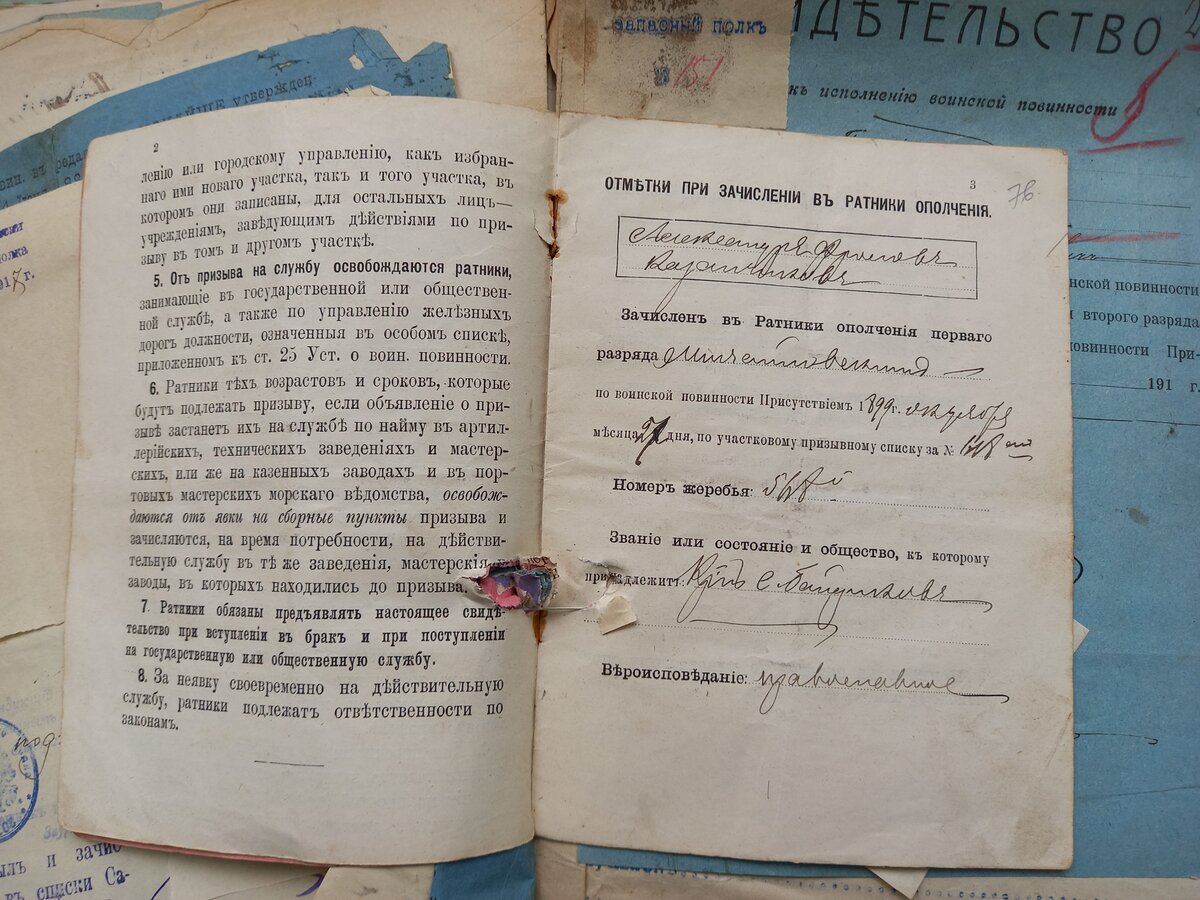 2
ленію или городскому управленію, какъ избран-
наго ими новаго участка, такъ и того участка, въ
которомъ они записаны, для остальныхъ лицъ—
учрежденіямъ, завѣдующимъ дѣйствіями по при-
зыву въ томъ и другомъ участкѣ.
5. Отъ призыва на службу освобождаются ратники,
занимающіе въ государственной или обществен-
ной службѣ, а также по управленію желѣзныхъ
дорогъ должности, означенныя въ особомъ спискѣ,
приложенномъ къ ст. 25 Уст. о воин. повинности.
6. Ратники тѣхъ возрастовъ и сроковъ, которые
будутъ подлежать призыву, если объявленіе о при-
зывѣ застанетъ ихъ на службѣ по найму въ артил-
лерійскихъ, техническихъ заведеніяхъ и мастер-
скихъ, или же на казенныхъ заводахъ и въ пор-
товыхъ мастерскихъ морскаго вѣдомства, освобож-
даются отъ явки на сборные пункты призыва и
зачисляются, на время потребности, на дѣйстви-
тельную службу въ тѣ же заведенія, мастерскія и
заводы, въ которыхъ находились до призыва.
7. Ратники обязаны предъявлять настоящее свидѣ-
тельство при вступленіи въ бракъ и при поступленіи
на государственную или общественную службу.
8. За неявку своевременно на дѣйствительную
службу, ратники подлежатъ отвѣтственности по
законамъ.
3
76
ОТМѢТКИ ПРИ ЗАЧИСЛЕНІИ ВЪ РАТНИКИ ОПОЛЧЕНІЯ.
Александръ Фроловъ
Казанчиковъ
Зачисленъ въ Ратники ополченія перваго
разряда
по воинской повинности Присутствіемъ 1899 г. октября
мѣсяца 27 дня, по участковому призывному списку за №
Номеръ жеребья:
Званіе или состояніе и общество, къ которому
принадлежитъ: с.
Вѣроисповѣданіе: православное
запасный полкъ
151
ИДѢТЕЛЬСТВО
къ исполненію воинской повинности
нской повинности
второго разряда
повинности При-
191 г.
утвержден
под
былъ и зачис
въ списки Са-